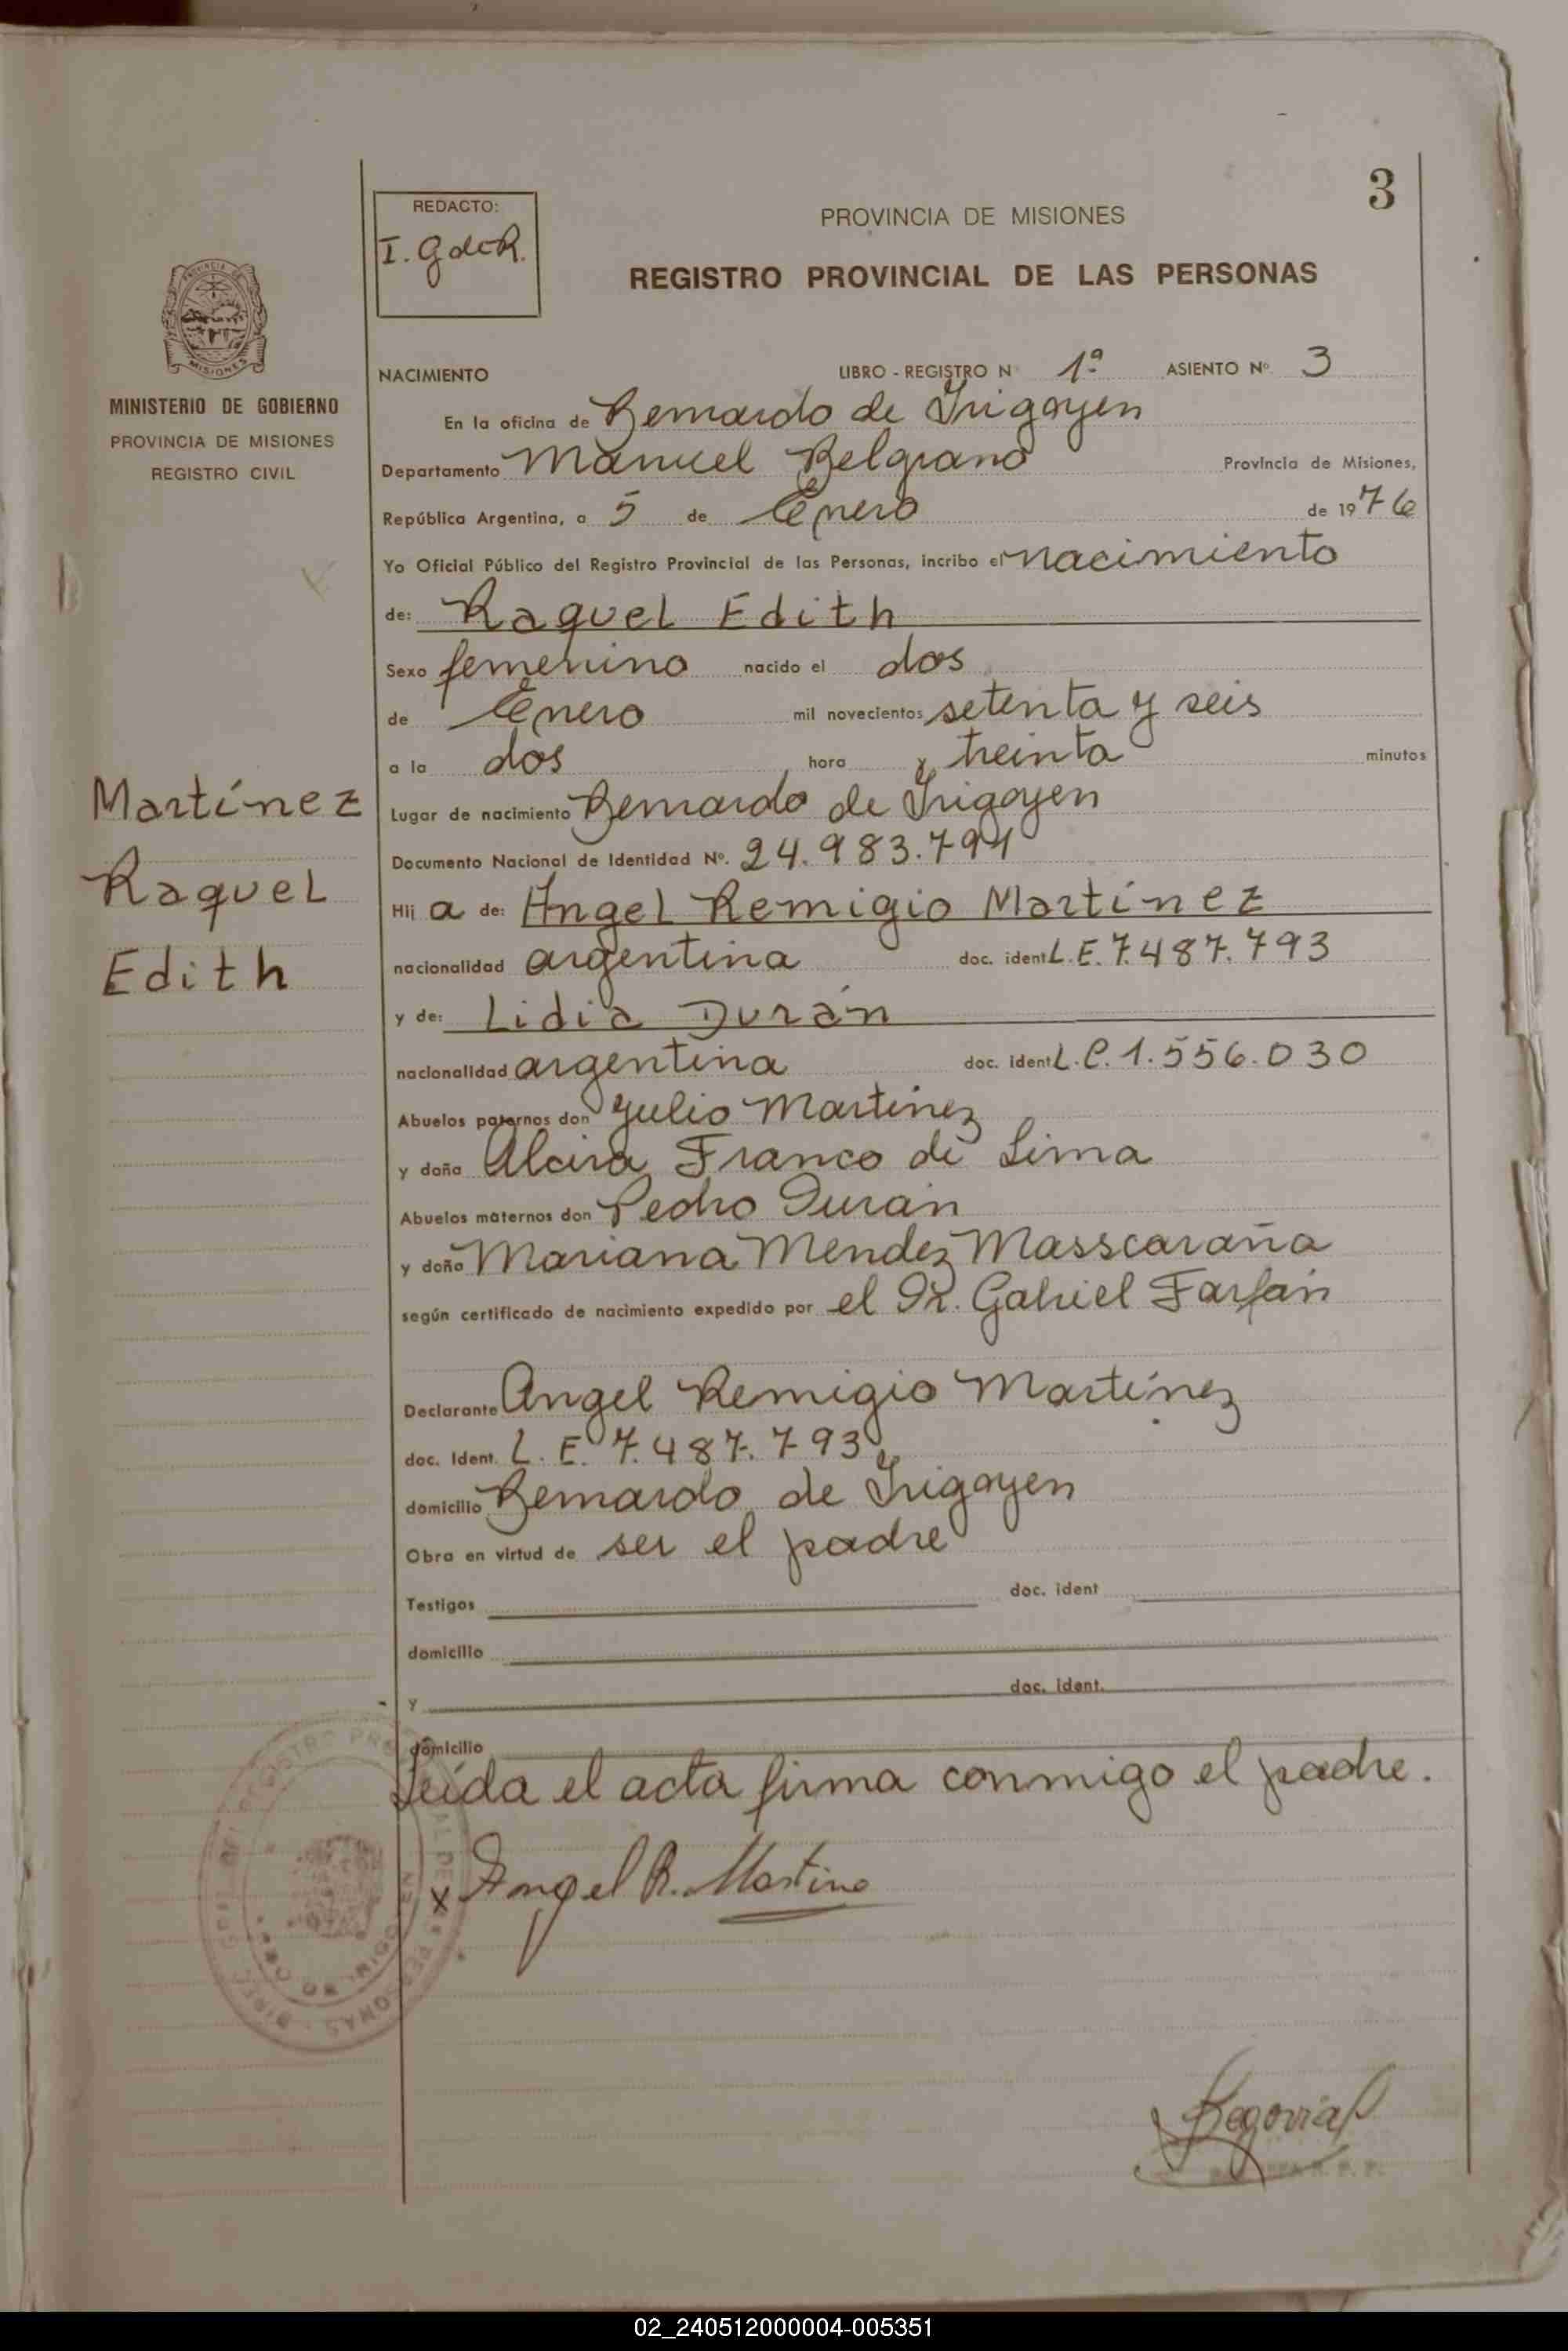 3
REDACTO:
I. G de R.
PROVINCIA DE MISIONES
REGISTRO PROVINCIAL DE LAS PERSONAS
MISIONES
MINISTERIO DE GOBIERNO
PROVINCIA DE MISIONES
REGISTRO CIVIL
NACIMIENTO LIBRO - REGISTRO Nº 1º ASIENTO Nº 3
En la oficina de Bernardo de Irigoyen
Departamento Manuel Belgrano Provincia de Misiones,
República Argentina, a 5 de Enero de 1976
Yo Oficial Público del Registro Provincial de las Personas, incribo el nacimiento
de: Raquel Edith
Sexo femenino nacido el dos
de Enero mil novecientos setenta y seis
a la dos hora y treinta minutos
Martínez
Raquel
Edith
Lugar de nacimiento Bernardo de Irigoyen
Documento Nacional de Identidad Nº. 24.983.791
Hij a de: Angel Remigio Martínez
nacionalidad argentina doc. ident L.E. 7.487.793
y de: Lidia Durán
nacionalidad argentina doc. ident L.C. 1.556.030
Abuelos paternos don Julio Martínez
y doña Alcira Franco de Lima
Abuelos maternos don Pedro Durán
y doña Mariana Mendez Masscaraña
según certificado de nacimiento expedido por el Dr. Gabriel Farfán
Declarante Angel Remigio Martínez
doc. Ident. L.E. 7.487.793
domicilio Bernardo de Irigoyen
Obra en virtud de ser el padre
Testigos doc. ident
domicilio
y doc. ident.
domicilio
Leída el acta firma conmigo el padre.
x Angel R. Martine
Segovia
02_240512000004-005351